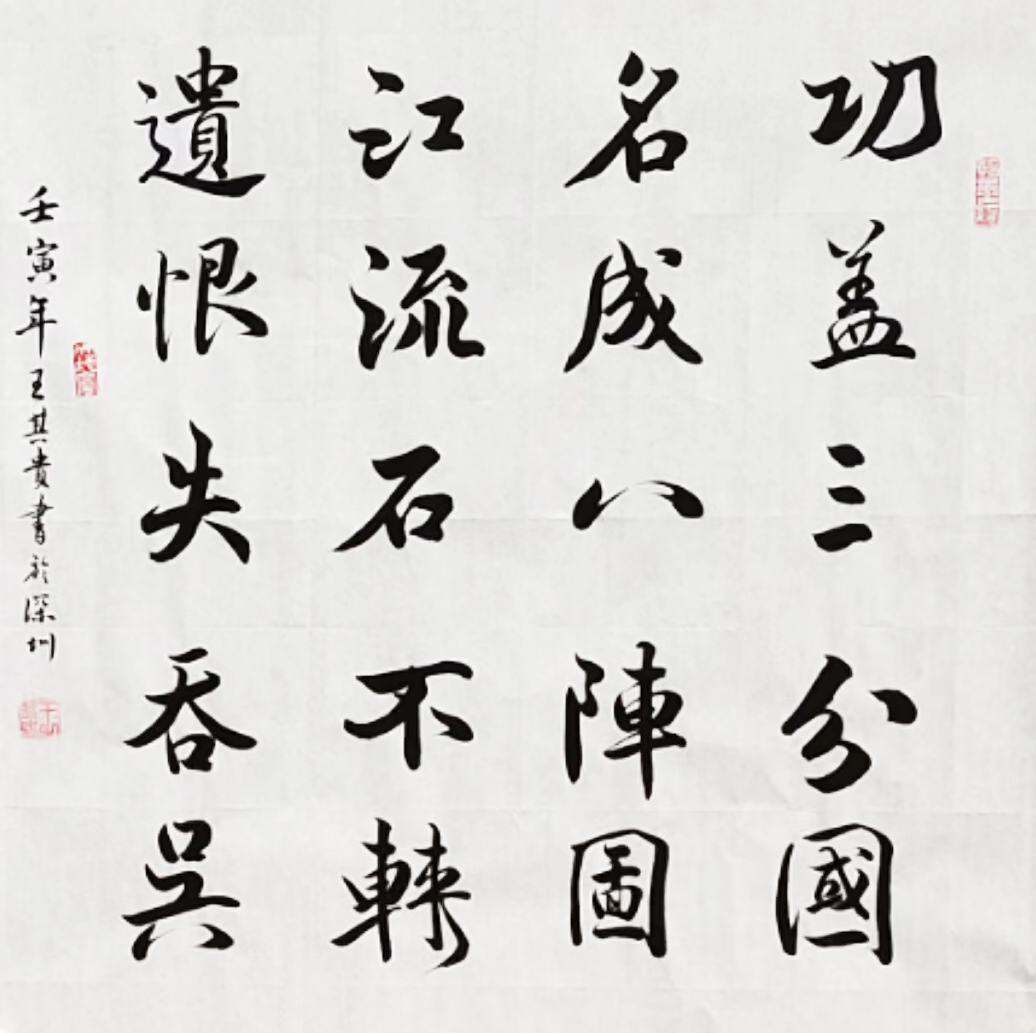 功盖三分國
名成八陣圖
江流石不轉
遺恨失吞吳
壬寅年王其貴書於深圳